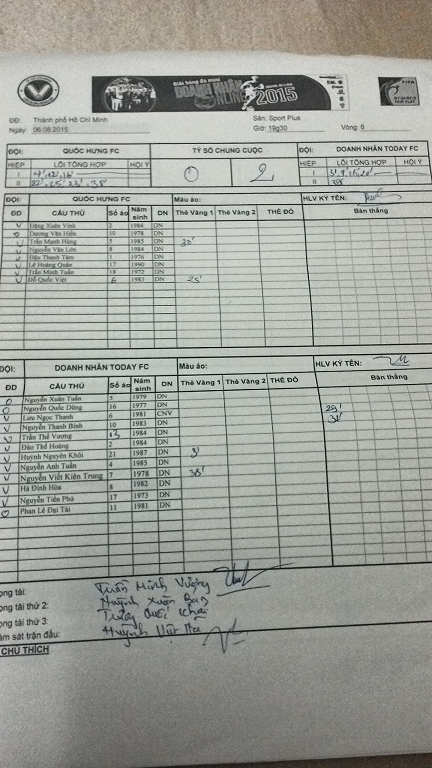 Giải bóng đá mini
DOANH NHÂN
ONLINE 2015
FIFA
MY GAME IS
FAIR PLAY
ĐĐ: Thành phố Hồ Chí Minh Sân: Sport Plus
Ngày: 06.08.2015 Giờ: 19g30 Vòng: 6
ĐỘI: QUỐC HƯNG FC TỶ SỐ CHUNG CUỘC ĐỘI: DOANH NHÂN TODAY FC
HIỆP LỖI TỔNG HỢP HỘI Ý 0 2 HIỆP LỖI TỔNG HỢP HỘI Ý
I 4', 12', 16' I
II II 38'
ĐỘI: QUỐC HƯNG FC Màu áo: HLV KÝ TÊN:
ĐD CẦU THỦ Số áo Năm sinh DN Thẻ Vàng 1 Thẻ Vàng 2 THẺ ĐỎ Bàn thắng
V Đặng Xuân Vinh 2 1984 DN
Dương Văn Hiền 10 1978 DN
V Trần Mạnh Hùng 5 1985 DN
V Nguyễn Văn Lớn 8 1984 DN
V Đậu Thanh Tâm 1 1976 DN
V Lê Hoàng Quân 17 1990 DN
V Trần Minh Tuấn 18 1972 DN
V Đỗ Quốc Việt 6 1983 DN 25'
ĐỘI: DOANH NHÂN TODAY FC Màu áo: HLV KÝ TÊN:
ĐD CẦU THỦ Số áo Năm sinh DN Thẻ Vàng 1 Thẻ Vàng 2 THẺ ĐỎ Bàn thắng
Nguyễn Xuân Tuấn 5 1979 DN
Nguyễn Quốc Dũng 16 1977 DN
V Lưu Ngọc Thanh 6 1981 CNV 29'
V Nguyễn Thanh Bình 10 1983 DN
V Trần Thế Vượng 13 1984 DN
V Đào Thế Hoàng 2 1984 DN
V Huỳnh Nguyên Khôi 21 1987 DN
V Nguyễn Anh Tuấn 4 1985 DN
V Nguyễn Viết Kiên Trung 7 1978 DN 38'
V Hà Đình Hòa 8 1982 DN
V Nguyễn Tiến Phú 17 1973 DN
Phan Lê Đại Tài 11 1981 DN
ọng tài: Trần Minh Vượng
ọng tài thứ 2: Huỳnh Xuân
ọng tài thứ 3: Quốc Khải
ám sát trận đấu: Huỳnh
CHÚ THÍCH